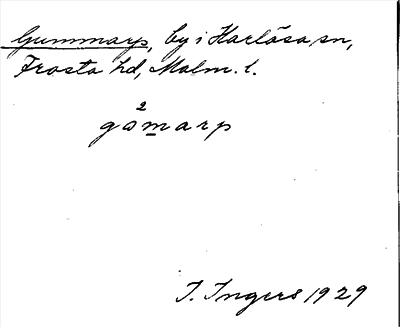 Gummarp, by i Harlösa sn,
Frosta hd, Malm. l.
2
gɷmarp
I. Ingers 1929